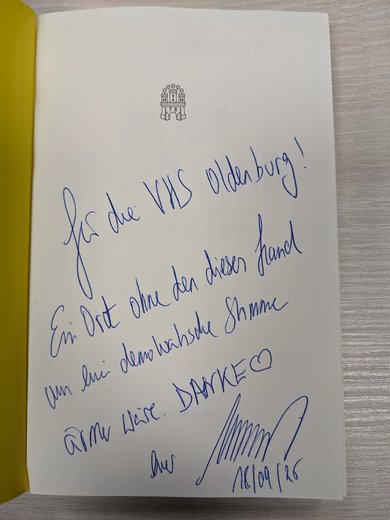 Für die VHS Oldenburg!
Ein Ort ohne den dieses Land
um eine demokratische Stimme
ärmer wäre. DANKE♡
18/09/25